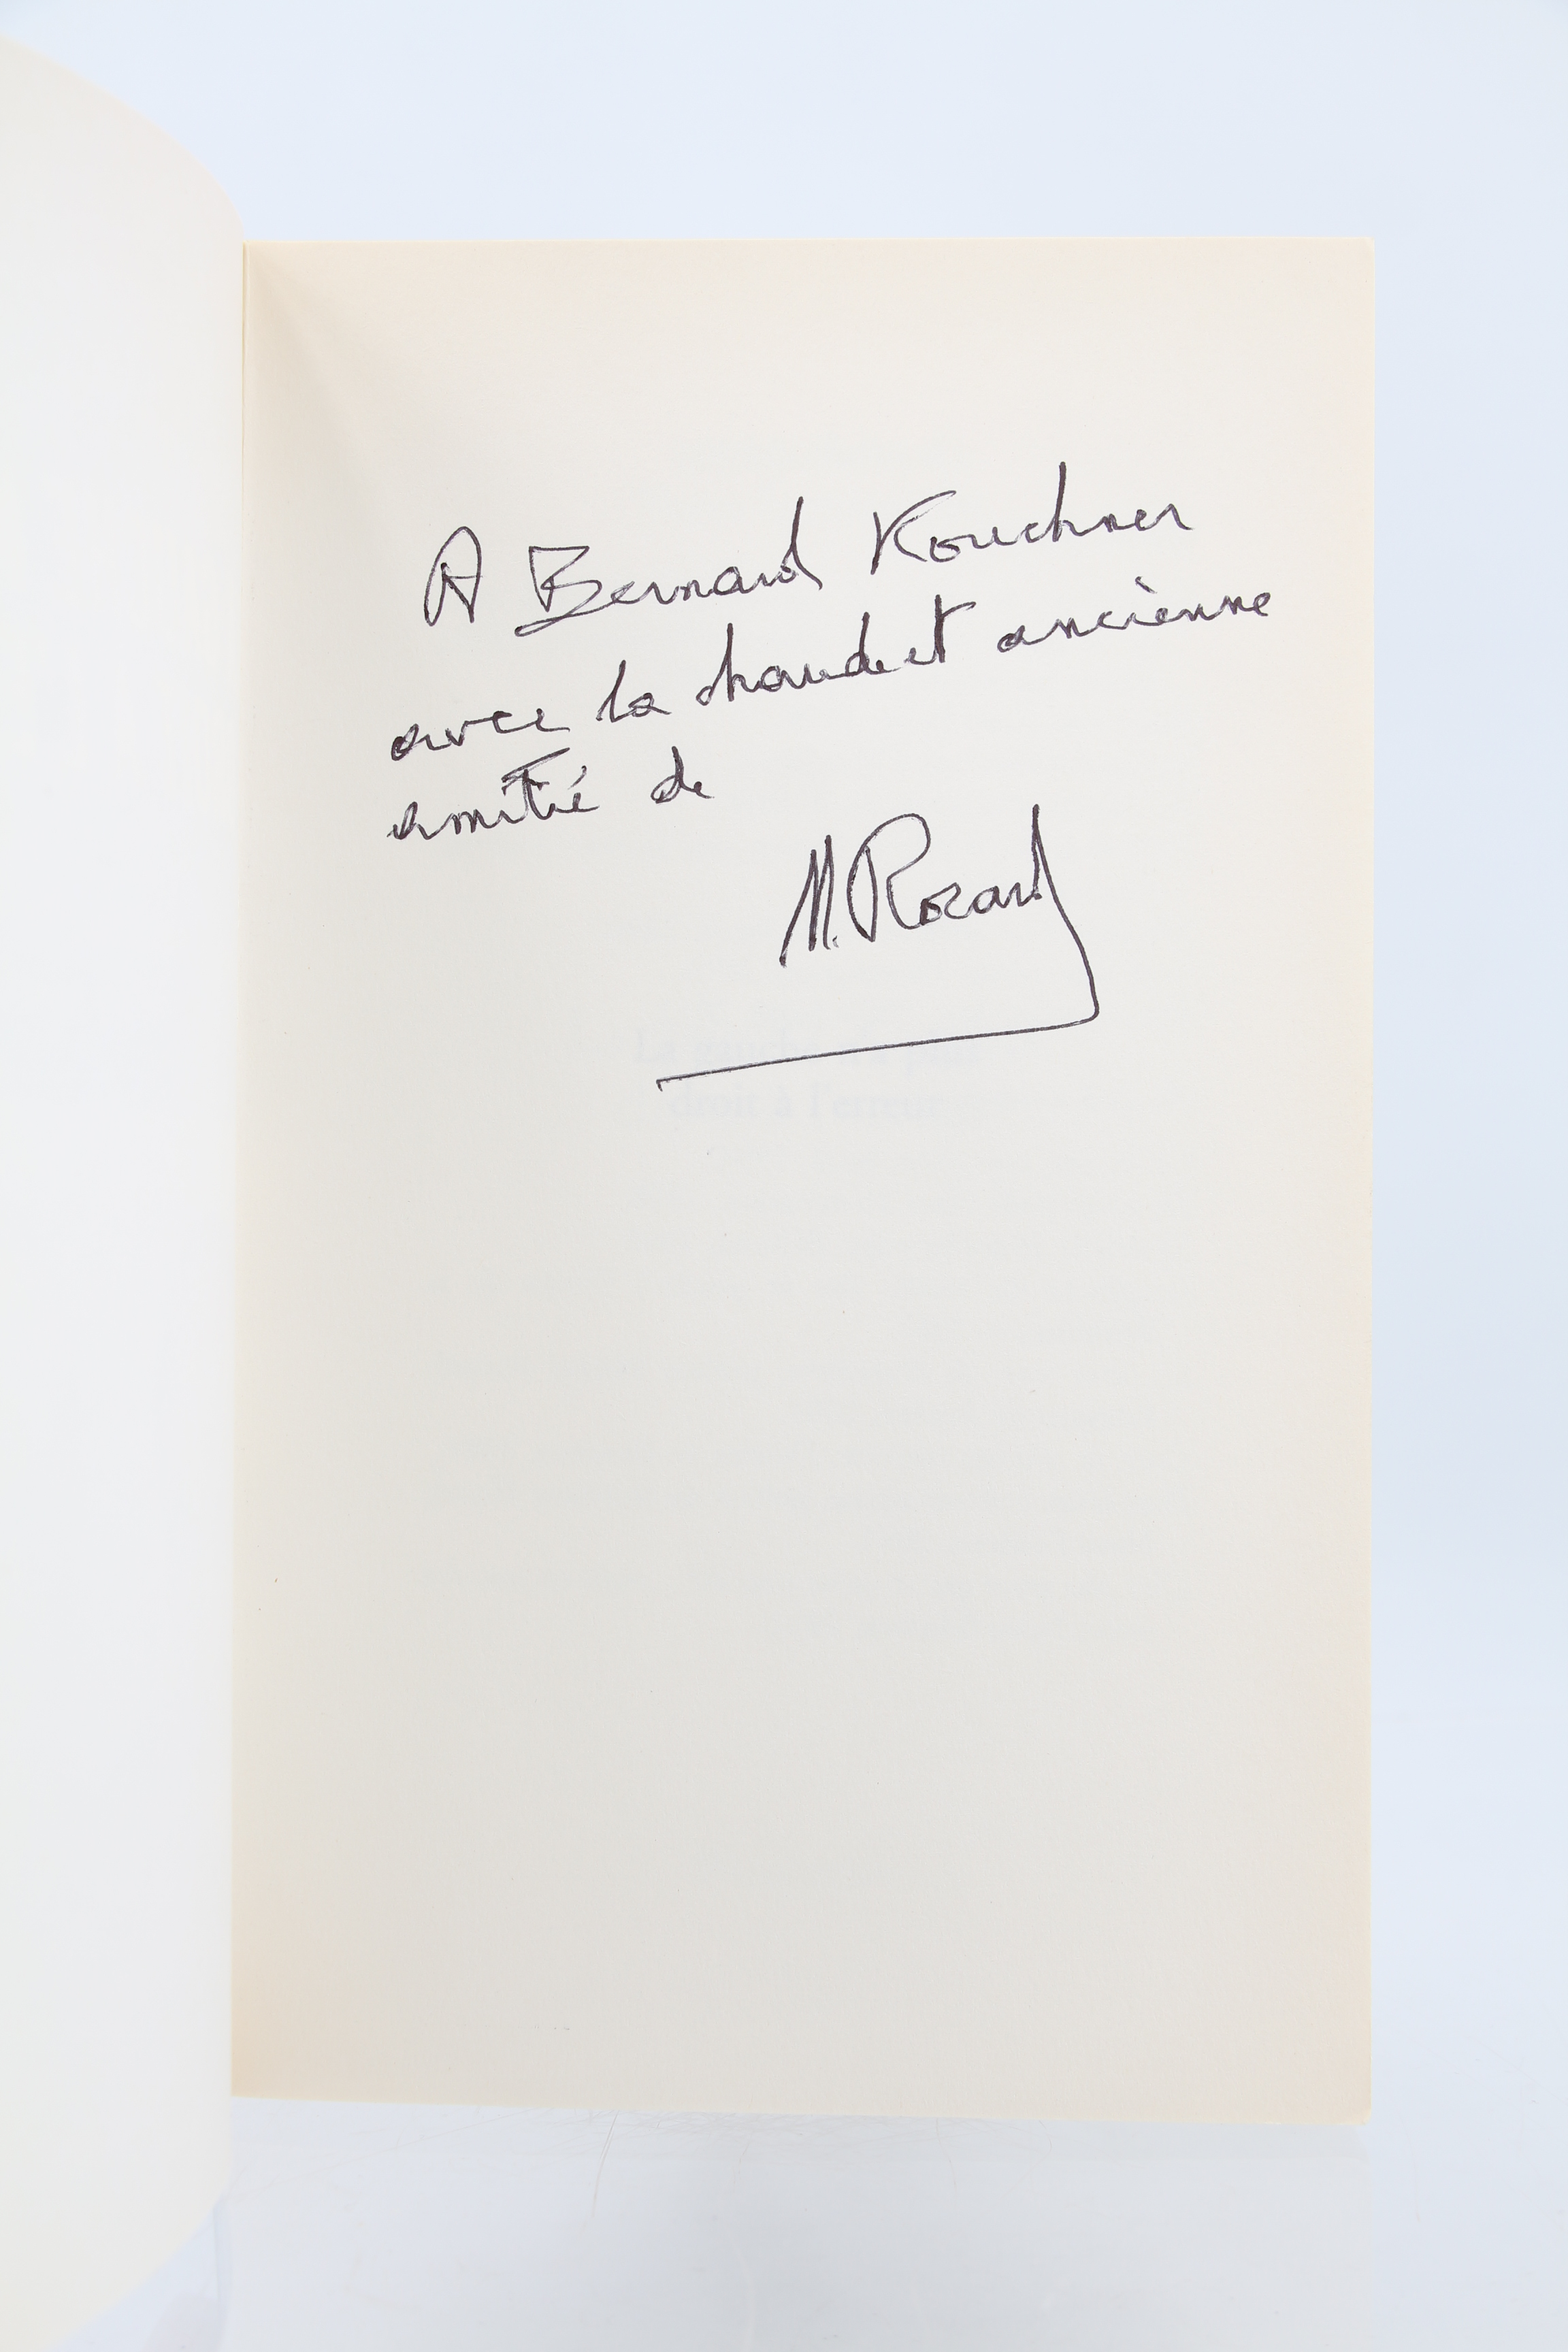 A Bernard Kouchner
avec la chaude et ancienne
amitié de
M. Rocard
La gauche n'a plus
droit à l'erreur